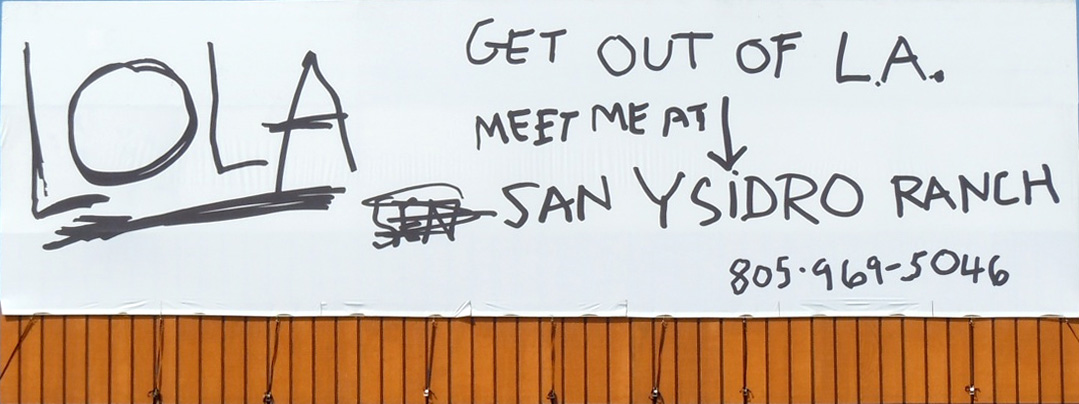 LOLA
GET OUT OF L.A.
MEET ME AT
SAN YSiDRO RANCH
805·969-5046